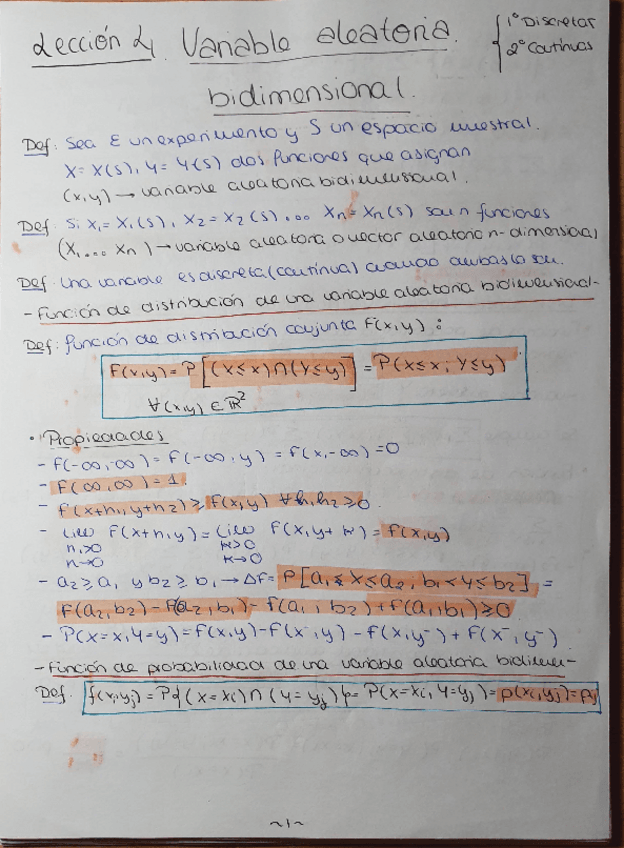 Lección 4. Variable aleatoria
bidimensional.
1º Discretas
2º Continuas
Def: Sea E un experimento y S un espacio muestral.
X = X(s), Y = Y(s) dos funciones que asignan
(x,y) → variable aleatoria bidimensional.
Def: Si X₁ = X₁(s), X₂ = X₂(s) ... Xn = Xn(s) son n funciones
(X₁ ... Xn) → variable aleatoria o vector aleatorio n-dimensional
Def: Una variable es discreta (continua) cuando ambas lo son.
- Función de distribución de una variable aleatoria bidimensional -
Def: función de distribución conjunta F(x,y) :
F(x,y) = P[(X≤x)∩(Y≤y)] = P(X≤x; Y≤y)
∀(x,y) ∈ ℝ²
· Propiedades
- F(-∞,-∞) = F(-∞,y) = F(x,-∞) = 0
- F(∞,∞) = 1.
- F(x+h₁,y+h₂) ≥ F(x,y) ∀h₁h₂ ≥ 0.
- lim F(x+h,y) = lim F(x,y+k) = F(x,y)
h>0 k>0
h→0 k→0
- a₂ ≥ a₁ y b₂ ≥ b₁ → ΔF = P[a₁ < X ≤ a₂, b₁ < Y ≤ b₂] =
F(a₂,b₂) - F(a₂,b₁) - F(a₁,b₂) + F(a₁,b₁) ≥ 0
- P(X=x,Y=y) = F(x,y) - F(x⁻,y) - F(x,y⁻) + F(x⁻,y⁻)
- Función de probabilidad de una variable aleatoria bidimen -
Def. f(xᵢ,yⱼ) = P{(X=xᵢ)∩(Y=yⱼ)} = P(X=xᵢ,Y=yⱼ) = p(xᵢ,yⱼ) = pᵢⱼ
~1~